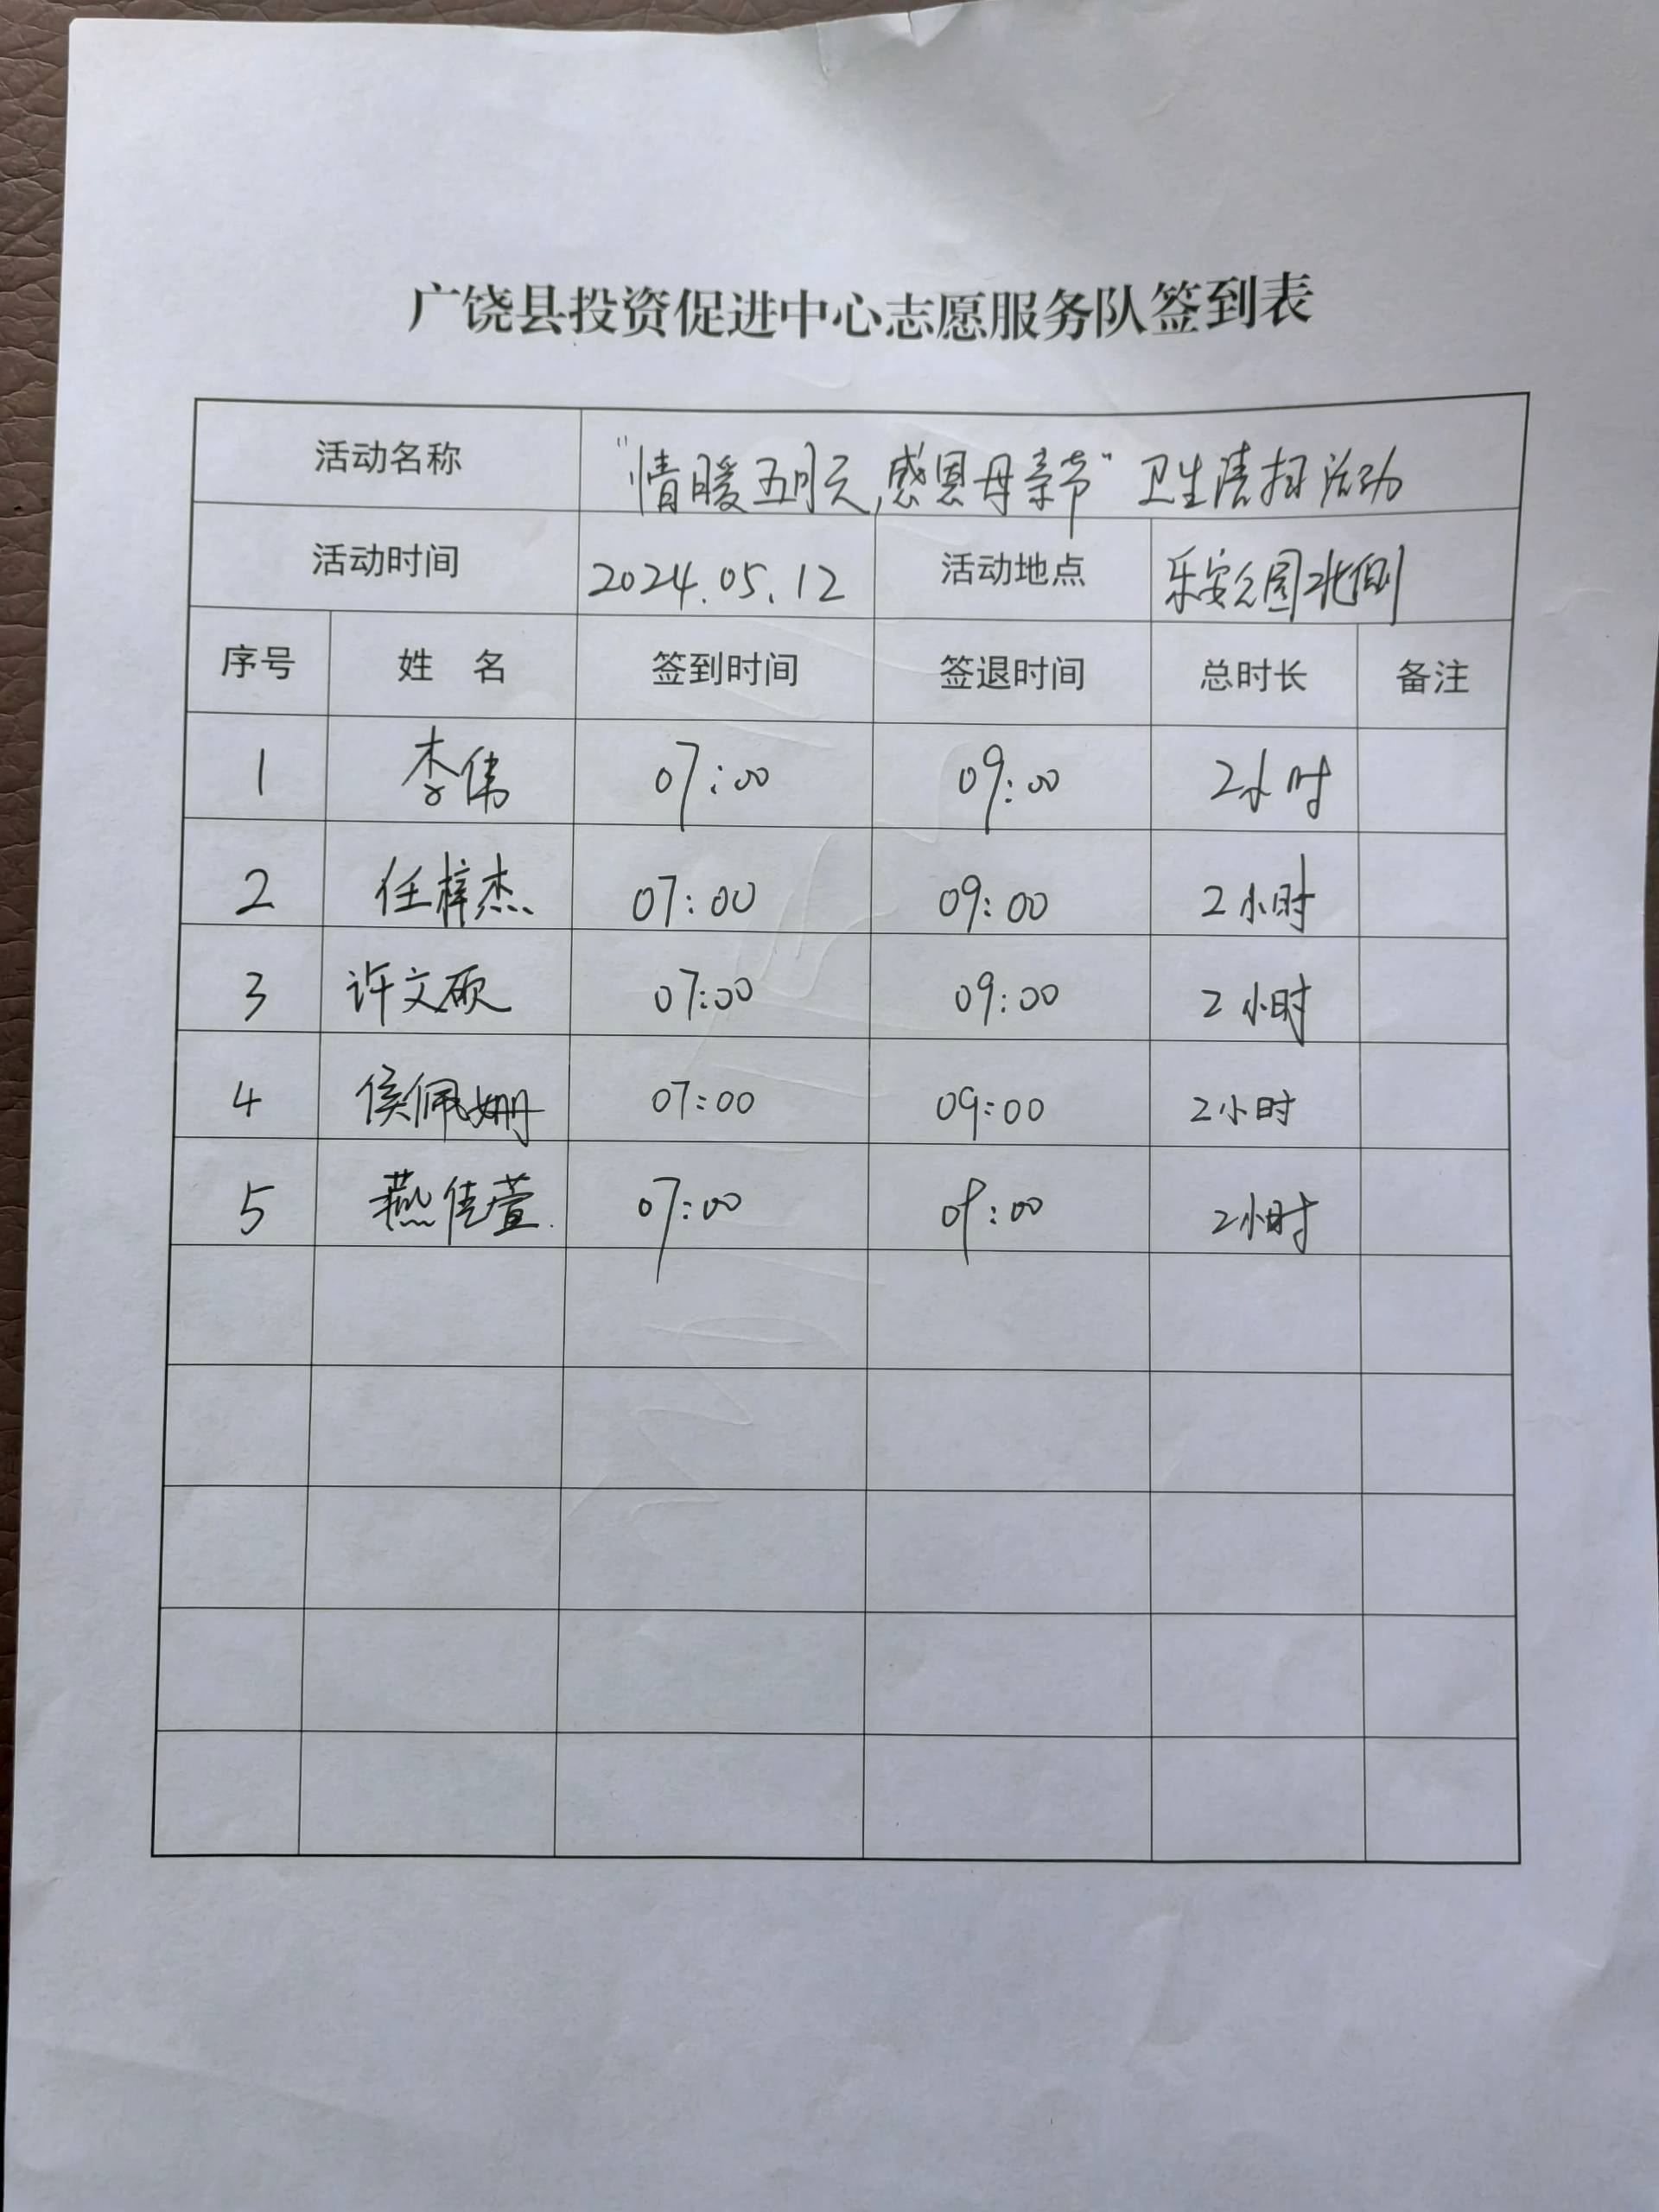 广饶县投资促进中心志愿服务队签到表
活动名称 "情暖五月天,感恩母亲节"卫生清扫活动
活动时间 2024.05.12 活动地点 乐安公园北侧
序号 姓 名 签到时间 签退时间 总时长 备注
1 李伟 07:00 09:00 2小时
2 任梓杰 07:00 09:00 2小时
3 许文硕 07:00 09:00 2小时
4 侯佩姗 07:00 09:00 2小时
5 燕佳萱 07:00 09:00 2小时